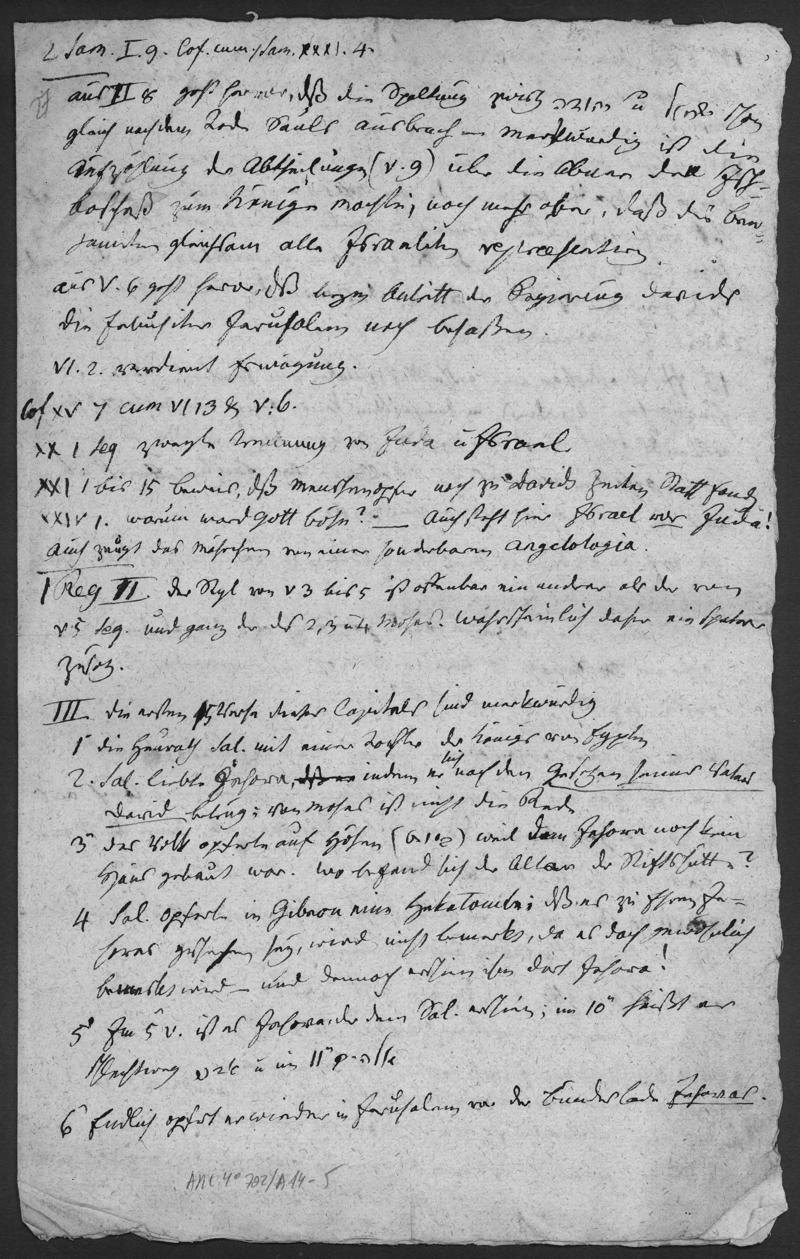 2 Sam. I. 9. Cof. cum 1 Sam. XXXI. 4.
aus II 8 geht hervor, dß die Spaltung zwisch יהודה u
gleich nach dem Tode Sauls ausbrach – merkwürdig ist die
Aufzählung der Abtheilungen (v. 9) über die Abner den Isch=
boscheth zum Könige machte, noch mehr aber, daß die Ben=
jamiten gleichsam alle Israeliten repræsentiren.
aus V. 6 geht hervor, dß beym Antritt der Regierung Davids
die Jebusiter Jerusalem noch besaßen.
VI. 2. verdient Erwägung.
Cof XV 7 cum VI 13 & V. 6.
XX 1 seq zweyte Trennung von Juda u Israel.
XXI 1 bis 15 beweis, dß Menschenopfer noch zu Davids Zeiten Statt fand
XXIV 1. warum ward Gott böse? — Auch steht hier Israel vor Juda!
Auch zeugt das Mährchen von einer sonderbaren Angelologia.
1 Reg II. der Styl von v 3 bis 5 ist offenbar ein andrer als der von
v 5 seq. und ganz der des 2, 3 u 4 Moses. Wahrscheinlich daher ein späterer
Zusatz.
III. die ersten 15 Verse dieses Capitels sind merkwürdig
1° die Heurath Sal. mit einer Tochter des Königs von Egypten
2. Sal. liebte Jehova, dß er indem er sich nach den Gesetzen seines Vaters
David betrug; von Moses ist nicht die Rede
3° das Volk opferte auf Höhen (במות) weil dem Jehova noch kein
Haus gebaut war. Wo befand sich der Altar der Stiftshütte?
4 Sal. opferte in Gibeon eine Hekatombe; dß es zu Ehren Je=
hovas geschehen sey, wird nicht bemerkt, da es doch gewöhnlich
bemerkt wird – und dennoch erschien ihm dort Jehova!
5° Im 5 v. ist es Jehova der dem Sal. erschien; im 10° heißt er
schlechtweg אדני u im 11° אלהים
6 Endlich opfert er wieder in Jerusalem vor der Bundeslade Jehovas.
ARC 4° 792/A 14-5